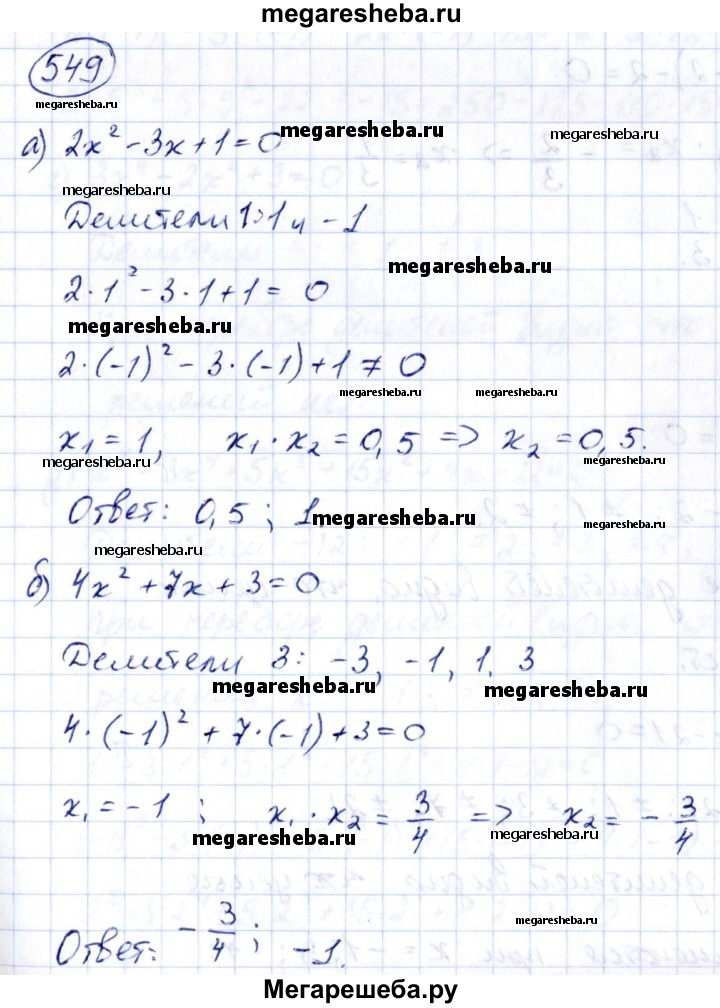 megaresheba.ru
549
megaresheba.ru
а) 2x² - 3x + 1 = 0
megaresheba.ru
megaresheba.ru
megaresheba.ru
Делители 1: 1 и -1
megaresheba.ru
2·1² - 3·1 + 1 = 0
megaresheba.ru
2·(-1)² - 3·(-1) + 1 ≠ 0
megaresheba.ru megaresheba.ru
x₁ = 1, x₁·x₂ = 0,5 => x₂ = 0,5.
megaresheba.ru megaresheba.ru
Ответ: 0,5; 1.
megaresheba.ru
megaresheba.ru
megaresheba.ru
б) 4x² + 7x + 3 = 0
megaresheba.ru
Делители 3: -3, -1, 1, 3
megaresheba.ru megaresheba.ru
4·(-1)² + 7·(-1) + 3 = 0
x₁ = -1; x₁·x₂ = 3/4 => x₂ = -3/4
megaresheba.ru megaresheba.ru
megaresheba.ru
Ответ: -3/4; -1.
Мегарешеба.ру